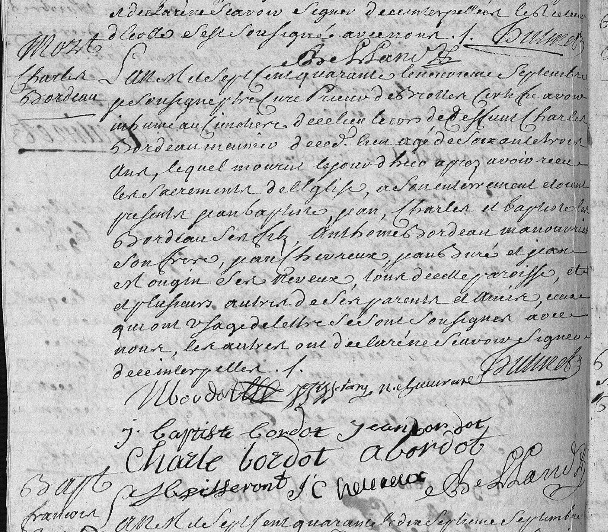 et declaré ne scavoir signer de ce interpellés les
d'icelle sest sousigné avec nous ./.
Mort
Charles
Bordeau
L'an Mil sept cent quarante le neuvieme septembre
je sousigné ptre Curé Prieur de Brolles Certifie avoir
inhumé au Cimetiere de ce lieu le corps de deffunt Charles
Bordeau meunier de ce d. lieu agé de soixante trois
ans, lequel mourut le jour d'hier apres avoir receu
les sacrements de l'Eglise, a son enterrement etoient
presents jean baptiste, jean, Charles et baptiste les
Bordeau ses fils, Anthoine Bordeau manouvrier
son frere, jean Chevreux, jean Buré et jean
ses neveux, tous de cette paroisse, et
et plusieurs autres de ses parents et amis, ceux
qui ont usage de lettre se sont sousignés avec
nous, les autres ont declaré ne scavoir signer
de ce interpellés ./.
j baptiste bordot jean bordot
Charle bordot a bordot
J C heureux
Bapt
francois
L'an Mil sept cent quarante le dix septieme septembre